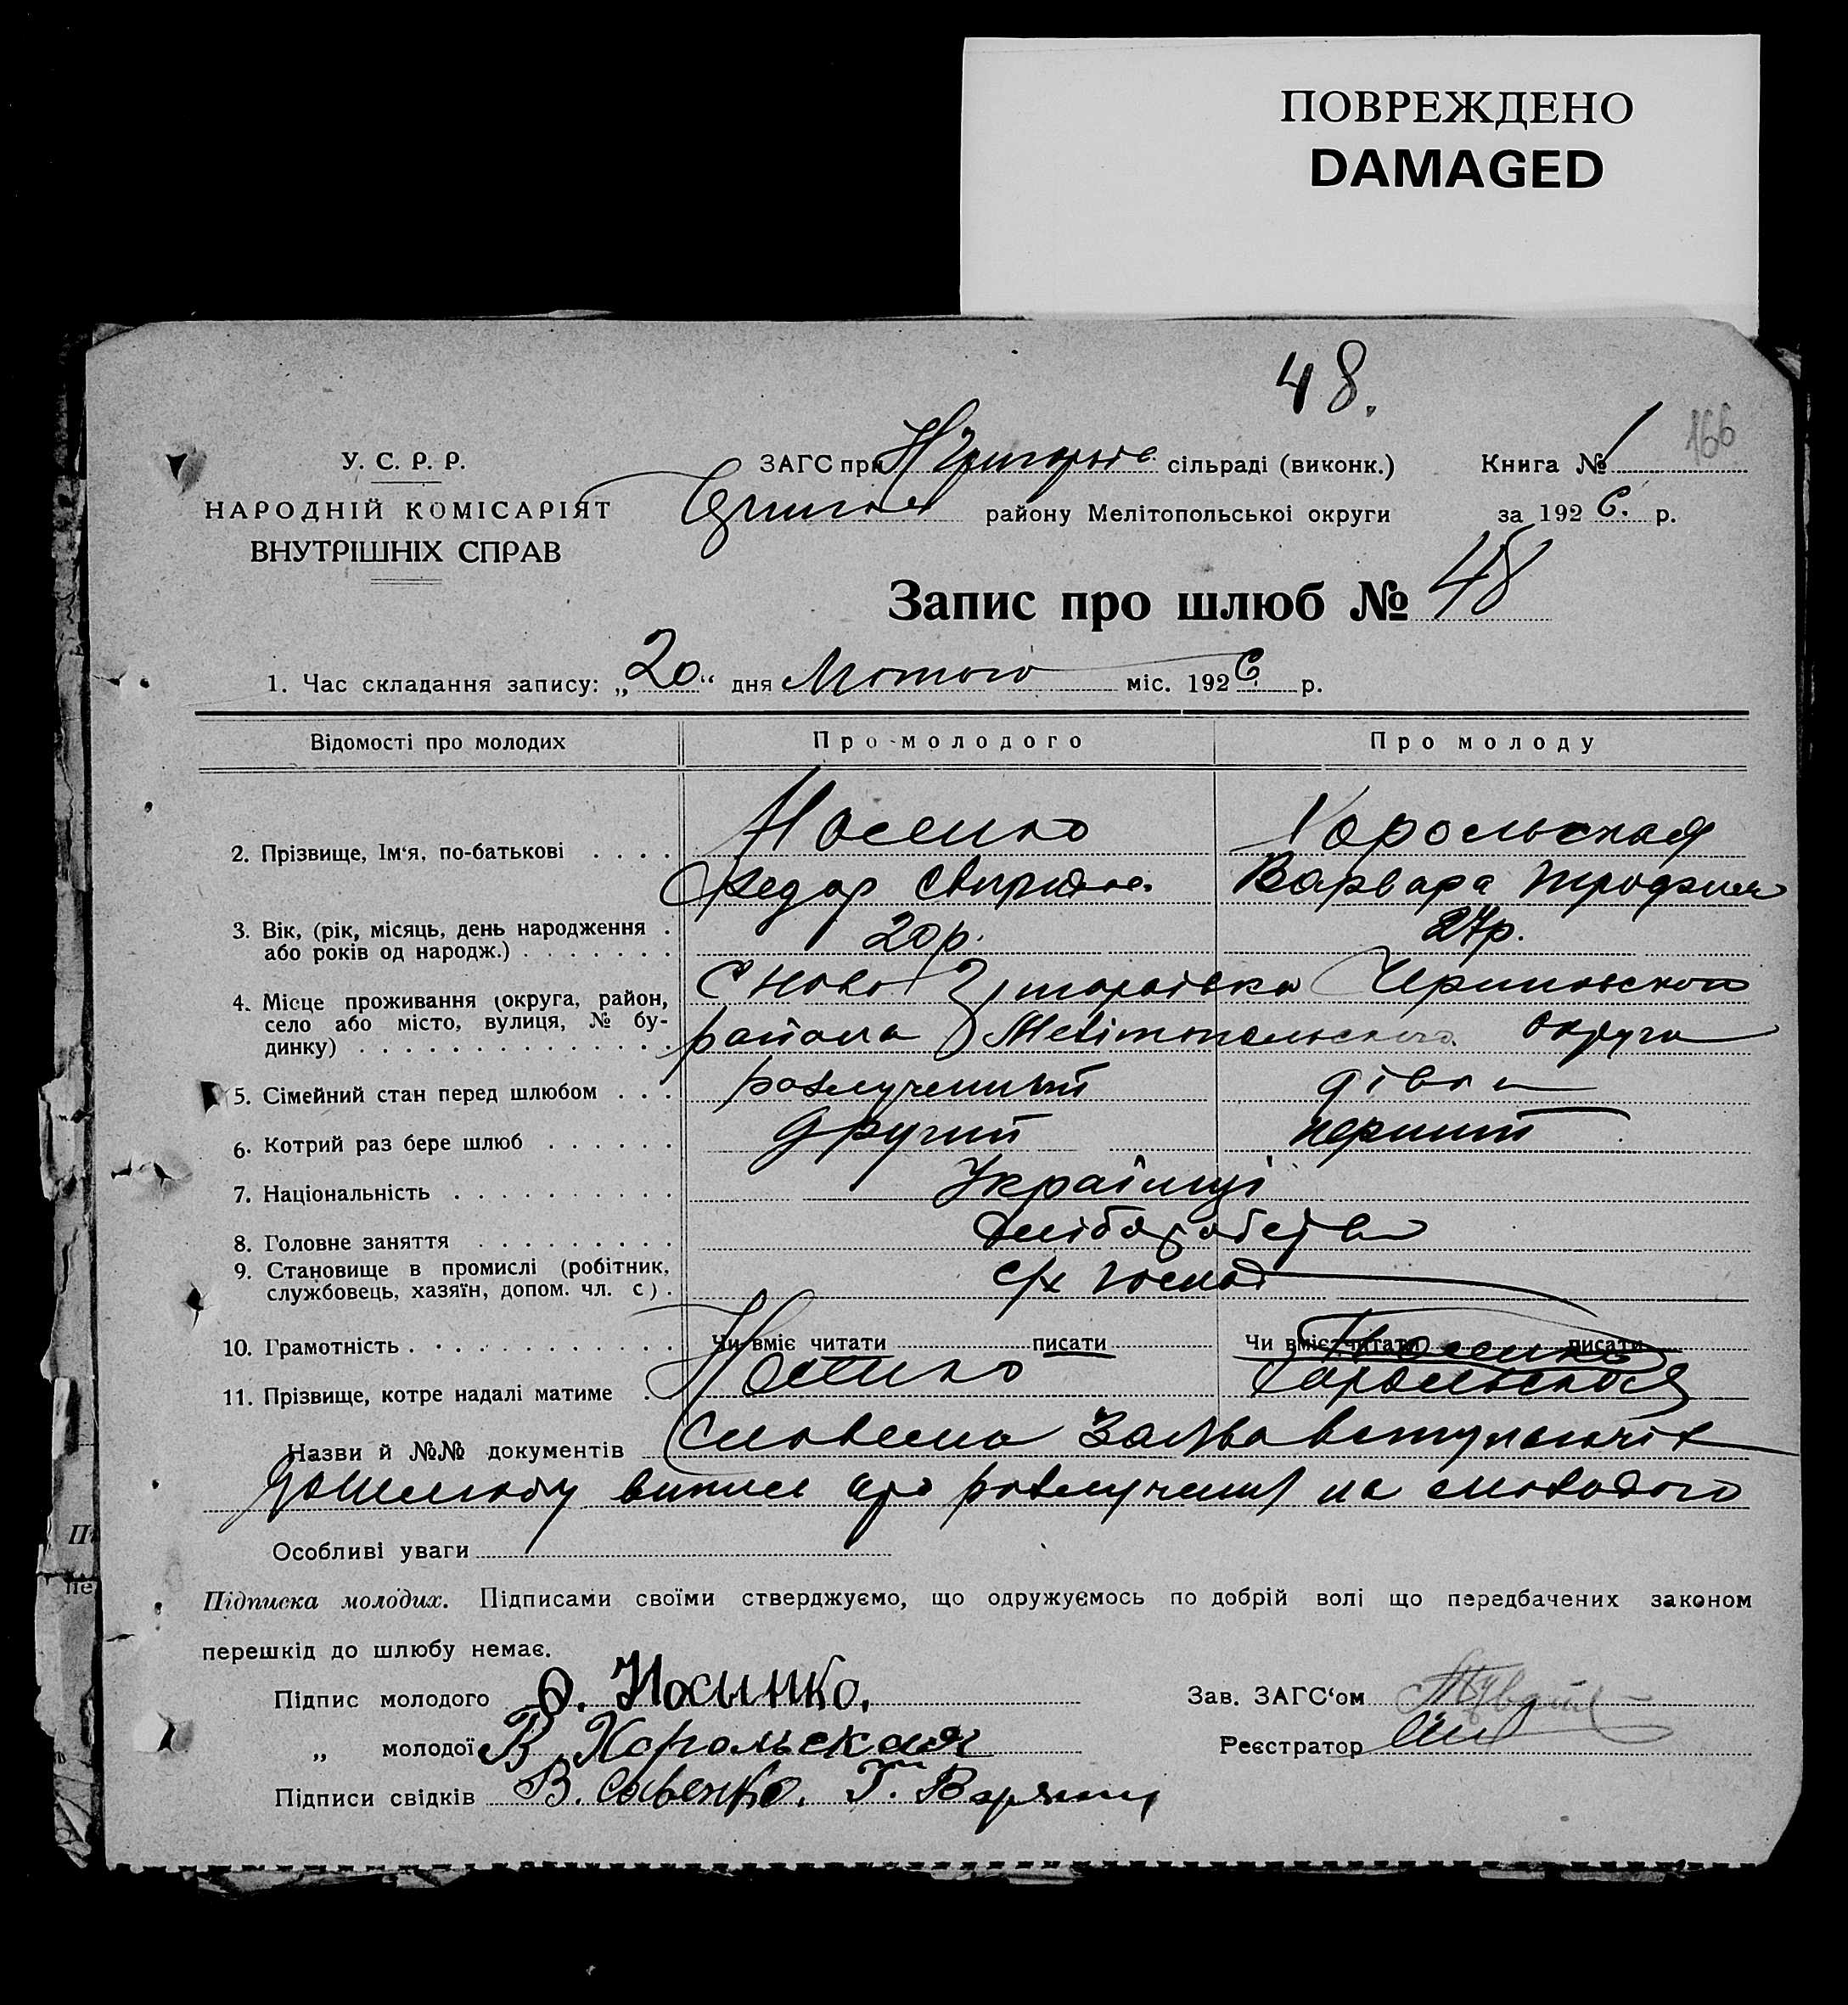 ПОВРЕЖДЕНО
DAMAGED
48.
166
У. С. Р. Р.
НАРОДНІЙ КОМІСАРІЯТ
ВНУТРІШНІХ СПРАВ
ЗАГС при сільраді (виконк.)
Книга № 1
району Мелітопольської округи
за 1926. р.
Запис про шлюб № 48
1. Час складання запису: „20“ дня Лютого міс. 1926 р.
Відомості про молодих Про молодого Про молоду
Носенко Корольская
2. Прізвище, Ім'я, по-батькові . . . .
Федор Свирид Варвара Трофим
3. Вік, (рік, місяць, день народження .
або років од народж.) . . . . . . . 20р. 27р.
4. Місце проживання (округа, район, с Ново
село або місто, вулиця, № бу-
динку) . . . . . . . . . . . . . . района Мелітопольского округа
5. Сімейний стан перед шлюбом . . . розлучений дівка
6. Котрий раз бере шлюб . . . . . . другий перший
7. Національність . . . . . . . . . . Українці
8. Головне заняття . . . . . . . . . хліборобство
9. Становище в промислі (робітник, с/х господ
службовець, хазяїн, допом. чл. с) .
10. Грамотність . . . . . . . . . . . . Чи вміє читати писати Чи вміє читати писати
11. Прізвище, котре надалі матиме . Носенко Корольская
Назви й №№ документів Словесна Заява вступаючіх
до шлюбу випись про розлучення на молодого
Особливі уваги
Підписка молодих. Підписами своїми стверджуємо, що одружуємось по добрій волі що передбачених законом
перешкід до шлюбу немає.
Підпис молодого Ф. Носынко.
Зав. ЗАГС'ом
„ молодої В Корольская
Реєстратор
Підписи свідків В. Савенко. Г.